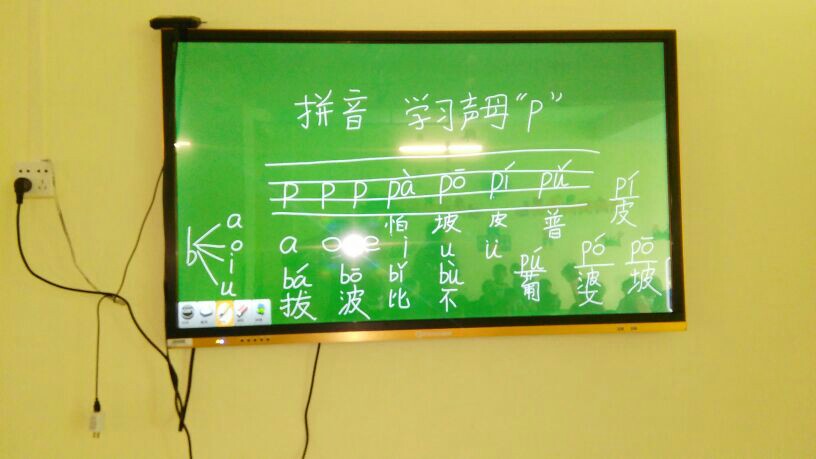 拼音 学习声母“p”
p p p pà pō pí pǔ pí
怕 坡 皮 普 皮
b a o i u
a o e i u ü
bá bō bǐ bù pú pó pō
拔 波 比 不 葡 婆 坡